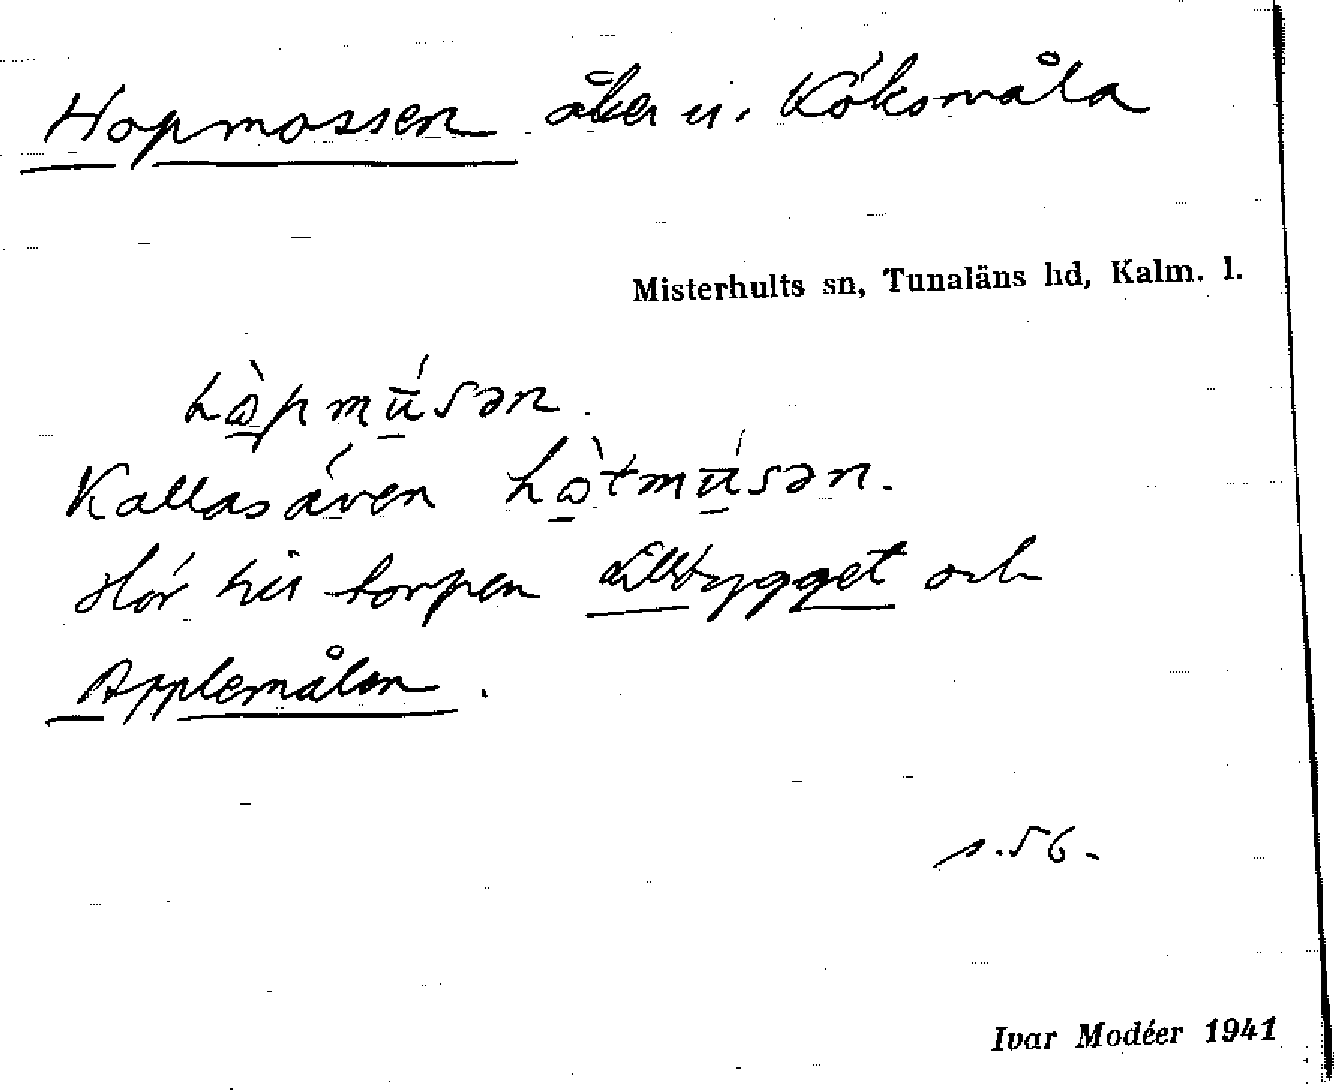 Hopmossen åker u. Köksmåla
Misterhults sn, Tunaläns hd, Kalm. l.
hò̱pmū̱́sən.
Kallas även hò̱tmū̱́sən.
Hör till torpen Lillbygget och
Applemålen.
s. 56.
Ivar Modéer 1941